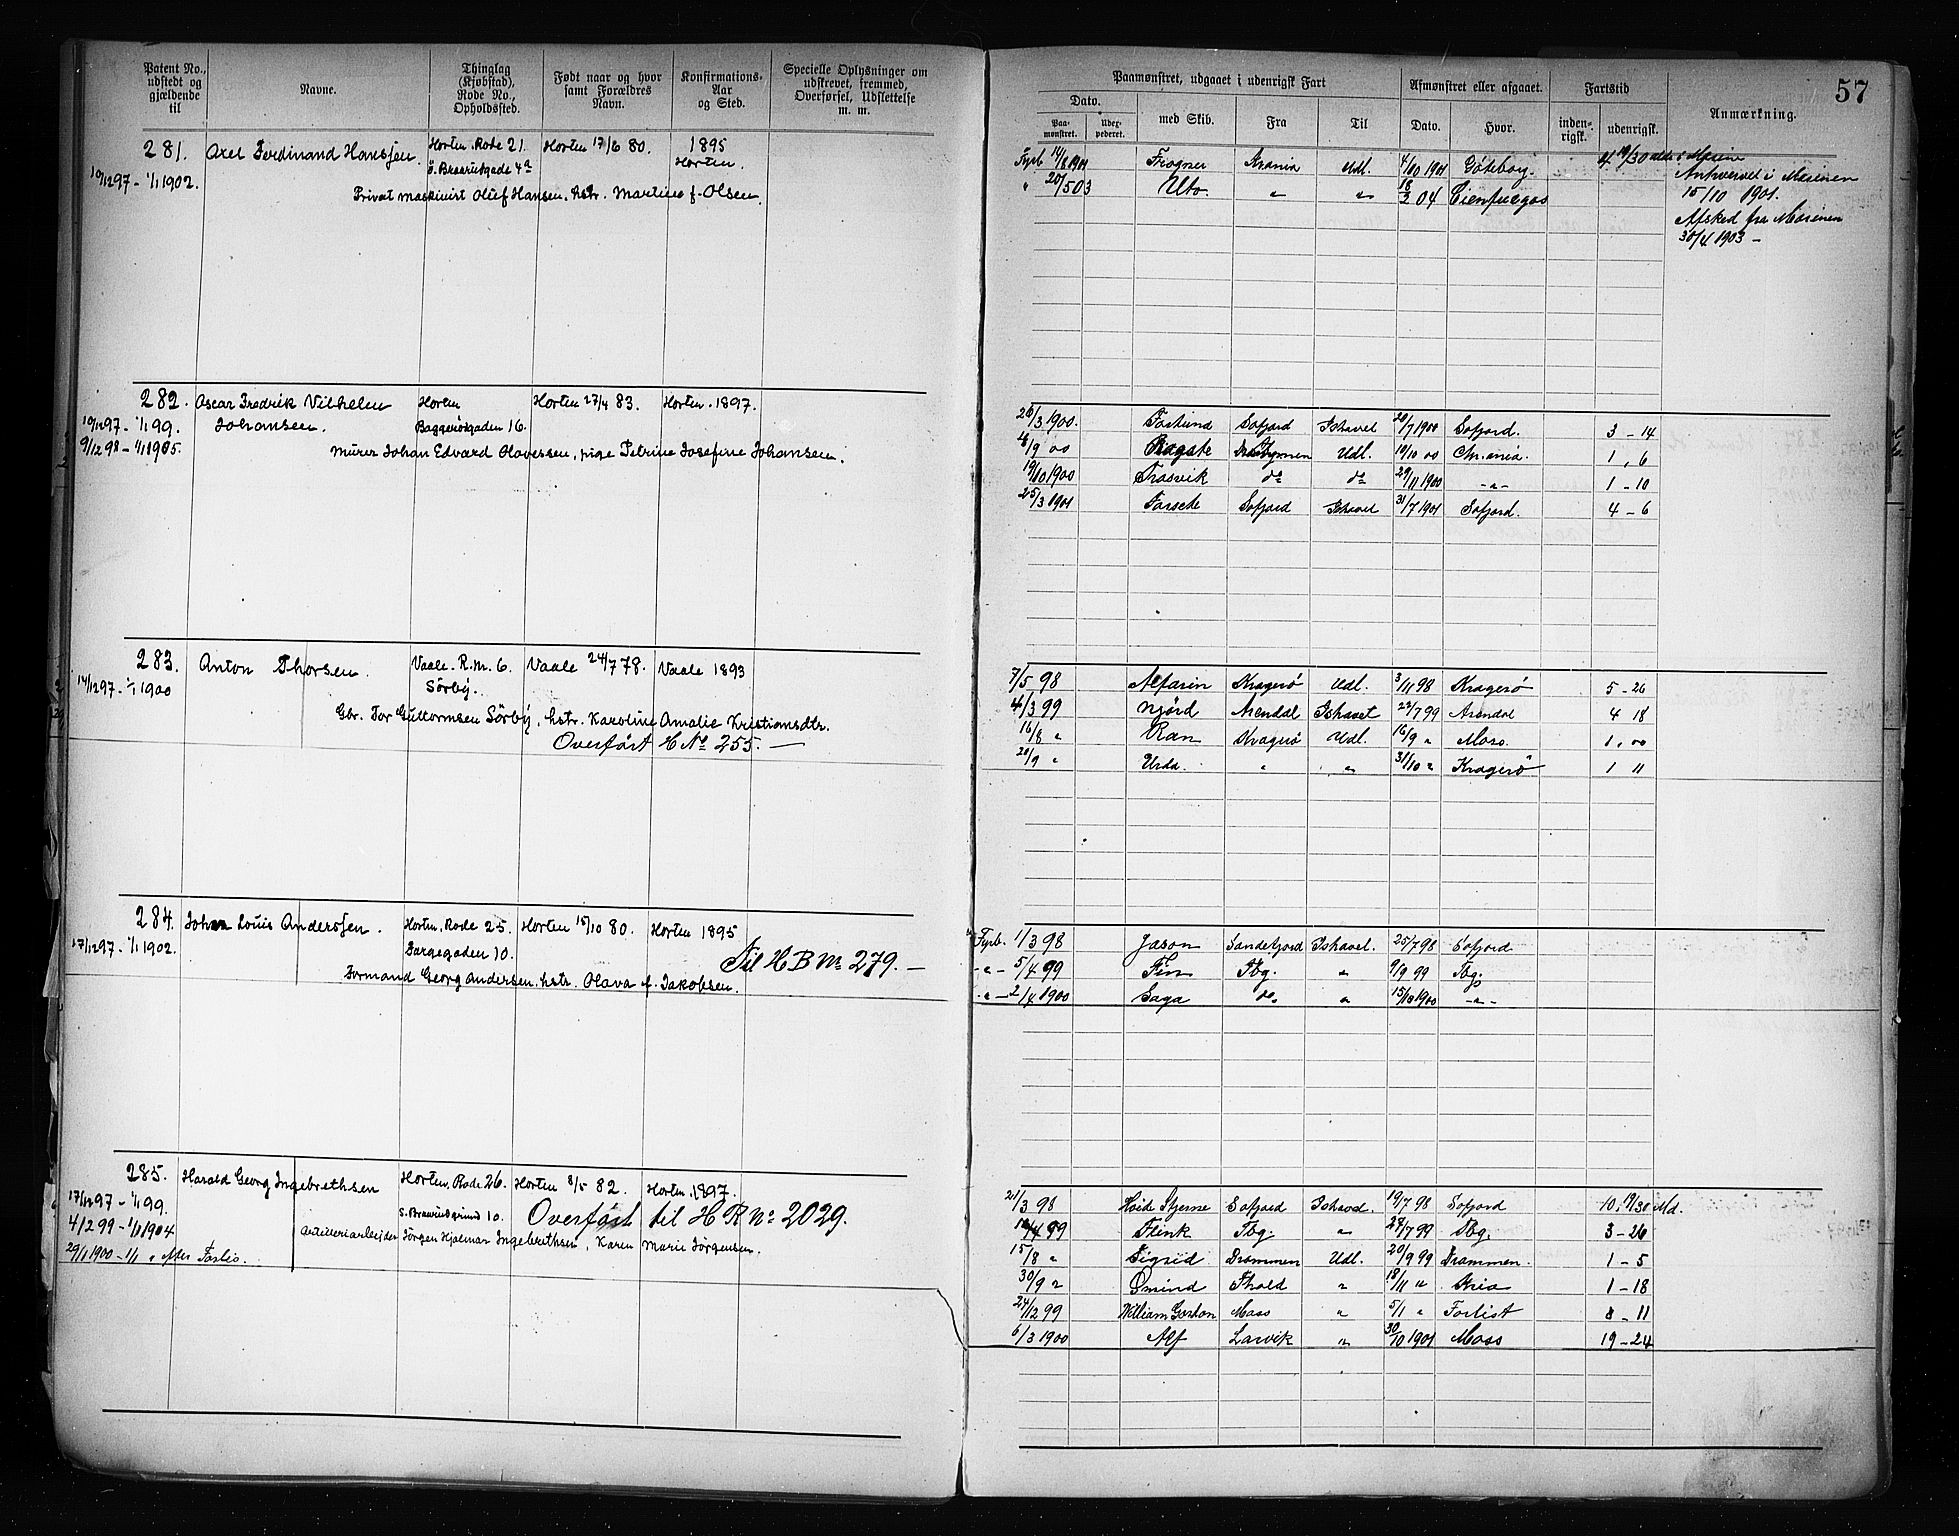 57
Patent No., udstedt og gjældende til
Navne.
Thinglag (Kjøbstad), Rode No., Opholdssted.
Født naar og hvor samt Forældres Navn.
Konfirmations-Aar og Sted.
Specielle Oplysninger om udskrevet, fremmed, Overførsel, Udslettelse m. m.
Paamønstret, udgaaet i udenrigsk Fart
Afmønstret eller afgaaet.
Fartstid
Anmærkning.
Dato.
Paa-mønstret.
med Skib.
Fra
Til
Dato.
Hvor.
inden-rigsk.
udenrigsk.
281. Axel Ferdinand Hansen. Horten. Rode 21. Horten 17/6 80. 1895
Horten.
10/12 97 - 1/1 1902.
Privat maskinist Oluf Hansen. hstr. Martine f. Olsen.
Fyrb 14/8 1901 Frogner Krania Udl. 4/10 1901 Göteborg.
" 20/5 03 Uto. " " 18/2 04 Cienfuegos
Anhvervet i Marinen
15/10 1901.
Afsked fra Marinen
30/4 1903 -
282. Oscar Fredrik Vilhelm Horten Horten 27/4 83. Horten. 1897.
10/12 97 - 1/1 99. Johansen. 16.
9/12 98 - 1/1 1905. Murer Johan Edvard Olavessen, pige Petrine Josefine Johansen.
26/3 1900. Sofjord Ishavet 20/7 1900 Sofjord. 3 - 14
4/9 00 Udl. 10/10 00 Chr.ania. 1, 6
19/10 1900 Frasvik do do 29/11 1900 - " - 1 - 10
25/3 1901 Sofjord Ishavet 31/7 1901 Sofjord. 4 - 6
283. Anton Thorsen. Vaale. R.M. 6. Vaale 24/7 78. Vaale 1893
14/12 97 - 1/1 1900 Sörby.
Gbr. Tor Guttormsen Sörby, hstr. Karoline Amalie Kristiansdtr.
Overført H No 255. -
7/5 98 Alfarin Kragerö Udl. 3/11 98 Kragerö 5 - 26
4/3 99 Njörd Arendal Ishavet 22/7 99 Arendal 4 18
16/8 " Ran Kragerö Udl. 16/9 " Moss. 1, 00
20/9 " Urda. " " 31/10 " Kragerö 1 11
284. Johan Louis Anderssen. Horten. Rode 25. Horten 15/10 80. Horten 1895
17/12 97 - 1/1 1902. 10. Til H B No 279. -
Formand Georg Andersen. hstr. Olava f. Jakobsen.
Fyrb. 1/3 98 Jason Sandefjord Ishavet. 25/7 98 Sofjord
- " - 5/4 99 Fin Tbg. " 9/9 99 Tbg.
- " - 2/4 1900 Saga do. " 15/10 1900 - " -
285. Harald Georg Ingebrethsen Horten, Rode 26. Horten 8/5 82. Horten. 1897.
17/12 97 - 1/1 99. 10. Overført til H R No 2029.
4/12 99 - 1/1 1904 Artilleriarbejder Jörgen Hjalmar Ingebrethsen, Karen Marie Jörgensen.
29/1 1900 - 1/1 " efter Forlis.
21/3 98 Hvide Stjerne Sofjord Ishavet. 19/7 98 Sofjord 10. 19/30 Md.
Flink Tbg. " 28/7 99 Tbg. 3 - 26
15/8 " Sigrid Drammen Udl. 20/9 99 Drammen. 1 - 5
30/9 " Ömind Thold " 18/11 " Kria 1 - 18
24/12 99 William Moss " 5/1 " Forlist 11
6/3 1900 Alf Larvik " 30/10 1901 Moss 19 - 24